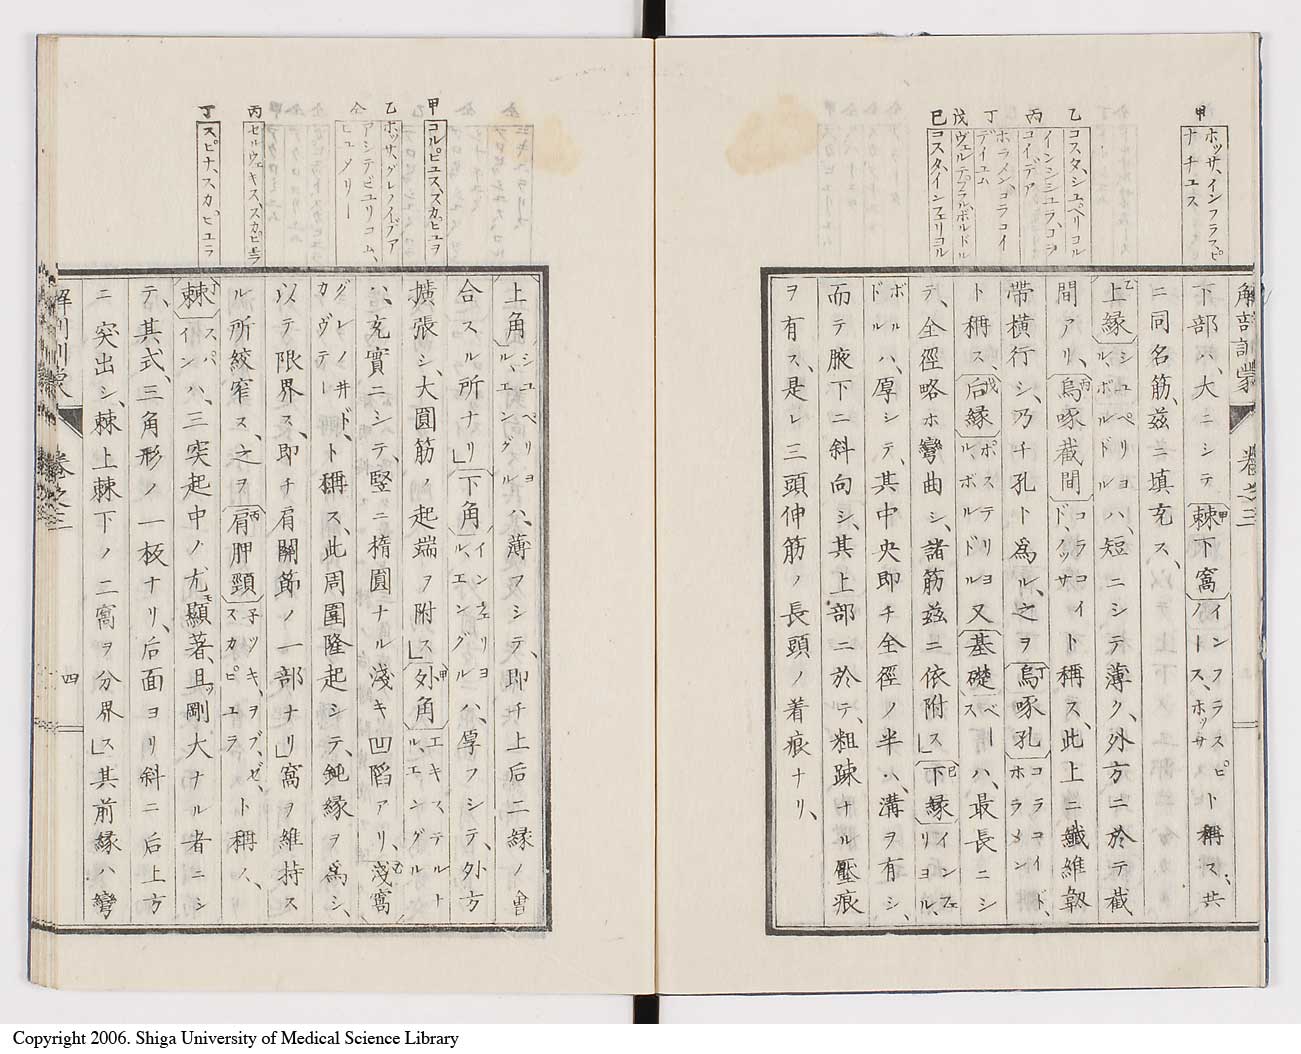 甲
ホッサ、インフラスピ
ナチュス
乙
コスタ、シュペリヲル
丙
インシシュラ、コラ
コイデア
丁
ホラメン、コラコイ
デイュム
戊
ヴェルテブラル、ボルドル
己
コスタ、インフェリヲル
解剖訓蒙 卷之三
下部ハ、大ニシテ棘下窩インフラスピノートス、ホッサト稱ス、共
ニ同名筋、茲ニ填充ス、
上縁シュペリヨル、ボルドルハ、短ニシテ薄ク、外方ニ於テ截
間アリ、烏啄截間コラコイド、ノッサト稱ス、此上ニ纖維靱
帶横行シ、乃チ孔ト爲ル、之ヲ烏啄孔コラコイド、ホラメン
ト稱ス、后縁ポステリヨル、ボルドル又基礎ベースハ、最長ニシ
テ、全徑略ホ彎曲シ、諸筋茲ニ依附ス」下縁インフェリヨル、
ボルドルハ、厚シテ、其中央即チ全徑ノ半ハ、溝ヲ有シ、
而テ腋下ニ斜向シ、其上部ニ於テ、粗踈ナル壓痕
ヲ有ス、是レ三頭伸筋ノ長頭ノ着痕ナリ、
甲
コルピュス、スカピュラヲ
乙
ホッサ、グレノイダア
仝
アシテビュリコム、
ヒュメリー
丙
セルウェキス、スカピュラ
丁
スピナ、スカピュラ
上角シュペリヨル、エングルハ、薄フシテ、即チ上后二縁ノ會
合スル所ナリ」下角インフェリヨル、エングルハ、厚フシテ、外方
擴張シ、大圓筋ノ起端ヲ附ス」外角エキステルナル、エングル
ハ、充實ニシテ、竪ニ楕圓ナル淺キ凹䧟アリ、淺窩
グレノ井ド、カヴテートト稱ス、此周圍隆起シテ、鈍縁ヲ爲シ、
以テ限界ス、即チ肩關節ノ一部ナリ」窩ヲ維持ス
ル所絞窄ス、之ヲ肩胛頸子ツキ、ヲブ、ゼ、スカピュラト稱ス、
棘スパインハ、三突起中ノ尤モ顯著、且ツ剛大ナル者ニシ
テ、其式、三角形ノ一板ナリ、后面ヨリ斜ニ后上方
ニ突出シ、棘上棘下ノ二窩ヲ分界ス」其前縁ハ彎
解剖訓蒙 卷之三
四
Copyright 2006. Shiga University of Medical Science Library